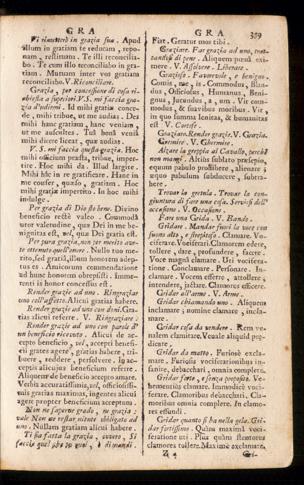 GRA
GRA
359
Vi rimetterò in grazia sua. Apud
illum in gratiam te reducam, repo-
nam, restituam. Te illi reconcilia-
bo. Te cum illo reconciliabo in gra-
tiam. Munum inter vos gratiam
reconciliabo. V. Riconciliare.
Grazia, per concessione di cosa ri-
chiesta a superiori. V. S. mi faccia gra-
zia d'udirmi. Id mihi gratiæ conce-
de, mihi tribue, ut me audias. Des
mihi hanc gratiam, hanc veniam,
ut me auscultes. Tuâ bonâ veniâ
mihi dicere liceat, que audias.
V. S. mi faccia questa grazia. Hoc
mihi officium præsta, tribue, imper-
tire. Hoc mihi da. Illud largire.
Mihi hîc in re gratificare. Hanc in
me confer, quæso, gratiam. Hoc
mihi gratiæ impertito. In hoc mihi
indulge.
Per grazia di Dio sto bene. Divino
beneficio rectè valeo. Commodâ
utor valetudine, quæ Dei in me be-
nignitas est, vel, quæ Dei gratia est.
Per pura grazia, non per merito ave-
te ottenuto quest'onore. Nullo tuo me-
rito, sed gratiâ, illum honorem adep-
tus es. Amicorum commendatione
ad hunc honorem obrepsisti. Imme-
renti is honor concessus est.
Render grazie ad uno. Ringraziar
uno coll'affetto. Alicui gratias habere.
Render grazie ad uno con doni. Gra-
tias alicui referre. V. Ringraziare.
Render grazie ad uno con parole d'
un beneficio ricevuto. Alicui de ac-
cepto beneficio, vel, accepti benefi-
cii grates agere, gratias habere, tri-
buere, reddere, persolvere. In acc-
eptis alicujus beneficium referre.
Aliquem de beneficio accepto amare.
Verbis accuratissimis, vel, officiosissi-
mis gratias maximas, ingentes alicui
agere propter beneficium acceptum.
Non ne sapere grado, nè grazia:
vale Non ne restar niente obbligato ad
uno. Nullam gratiam alicui habere.
Ti sia fatta la grazia, ovvero, Si
faccia quel che tu vuoi, o dimandi.
Fiat. Geratur mos tibi.
Graziare. Far grazia ad uno, con-
tandosi di pene. Aliquem pœnâ exi-
mere. V. Assolvere. Liberare.
Grazioso. Favorevole, e benigno.
Comis, me, is. Commodus, blan-
dus, Officiosus, Humanus, Beni-
gnus, Jucundus, a, um. Vir com-
modus, & suavibus moribus. Vir,
in quo summa lenitas, & humanitas
est. V. Cortese.
Graziare. Render grazie. V. Grazia.
Gremire. V. Ghermire.
Alzare la greppia al Cavallo, perchè
non mangi. Altius sublato præsepio,
equum pabulo prohibere, alienare;
equo pabulum subducere, subtra-
here.
Trovar la gretola. Trovar la con-
giuntura di fare una cosa. Servirsi dell'
occasione. V. Occasione.
Fare una Grida. V. Bando.
Gridare. Mandar fuori la voce con
suono alto, e strepitoso. Clamare. Vo-
ciferare. Vociferari. Clamorem edere,
tollere, dare, profundere, facere.
Voce magnâ clamare. Uti vocifera-
tione. Conclamare. Personare. In-
clamare. Vocem efferre, attollere,
intendere, jactare. Clamores efficere.
Gridar all'arme. V. Arme.
Gridar chiamando uno. Aliquem
inclamare; nomine clamare, incla-
mare.
Gridar cosa da vendere. Rem ve-
nalem clamitare. Venale aliquid præ-
dicare.
Gridar da matto. Furiosè excla-
mare. Furiosis vociferationibus in-
sanire, debacchari, omnia complere.
Gridar forte, e senza proposito. Ve-
hementius clamare. Immodicè voci-
ferare. Clamoribus debacchari. Cla-
moribus omnia complere. In clamo-
res effundi.
Gridar quanto si ha nella gola. Gri-
dar fortissimo. Quàm maximâ voci-
feratione uti. Plus quàm stentoreos
clamores tollere. Maximè exclamare,
Z 4
Gri-